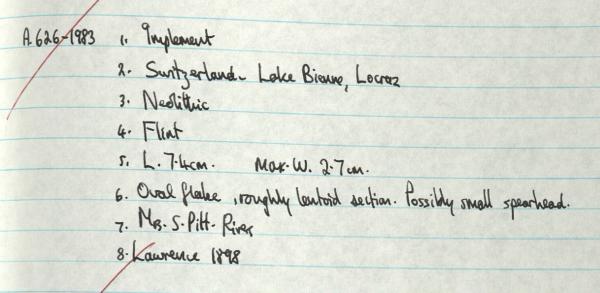 A.626-1983 1. Implement
2. Switzerland - Lake Bienne, Locraz
3. Neolithic
4. Flint
5. L. 7.4cm. Max. W. 2.7cm.
6. Oval flake, roughly lentoid section. Possibly small spearhead.
7. Mrs. S. Pitt-Rivers
8. Lawrence 1898